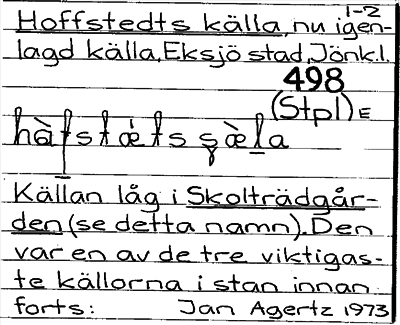 1-2
Hoffstedts källa, nu igen-
lagd källa, Eksjö stad, Jönk.l.
498
(Stpl) E
Källan låg i Skolträdgår-
den (se detta namn). Den
var en av de tre viktigas-
te källorna i stan innan
forts: Jan Agertz 1973